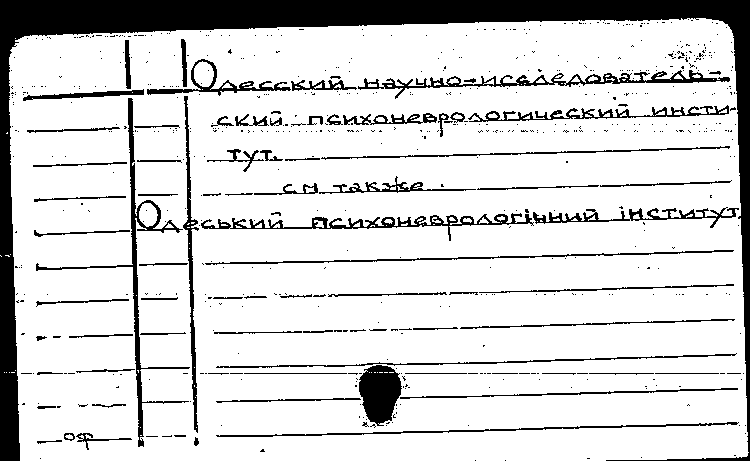 Одесский научно-исследователь-
ский психоневрологический инсти-
тут.
см также.
Одеський психоневрологічний інститут
оф